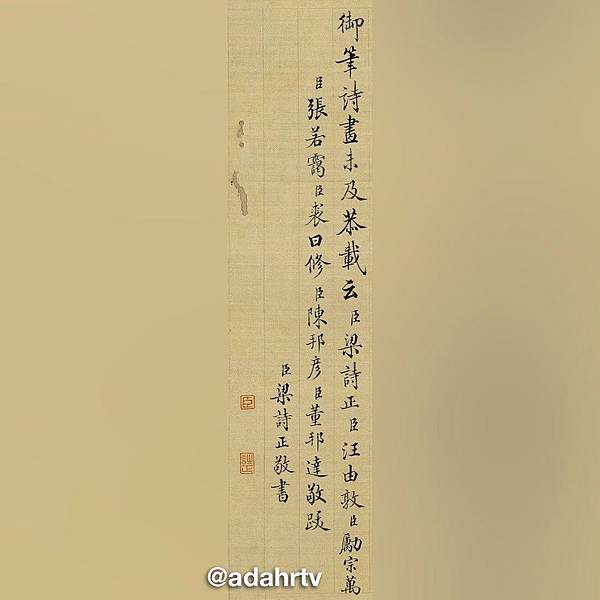 御筆詩畫未及恭載云臣梁詩正臣汪由敦臣勵宗萬
臣張若靄臣裘曰修臣陳邦彥臣董邦達敬跋
臣梁詩正敬書
臣
詩正
@adahrtv